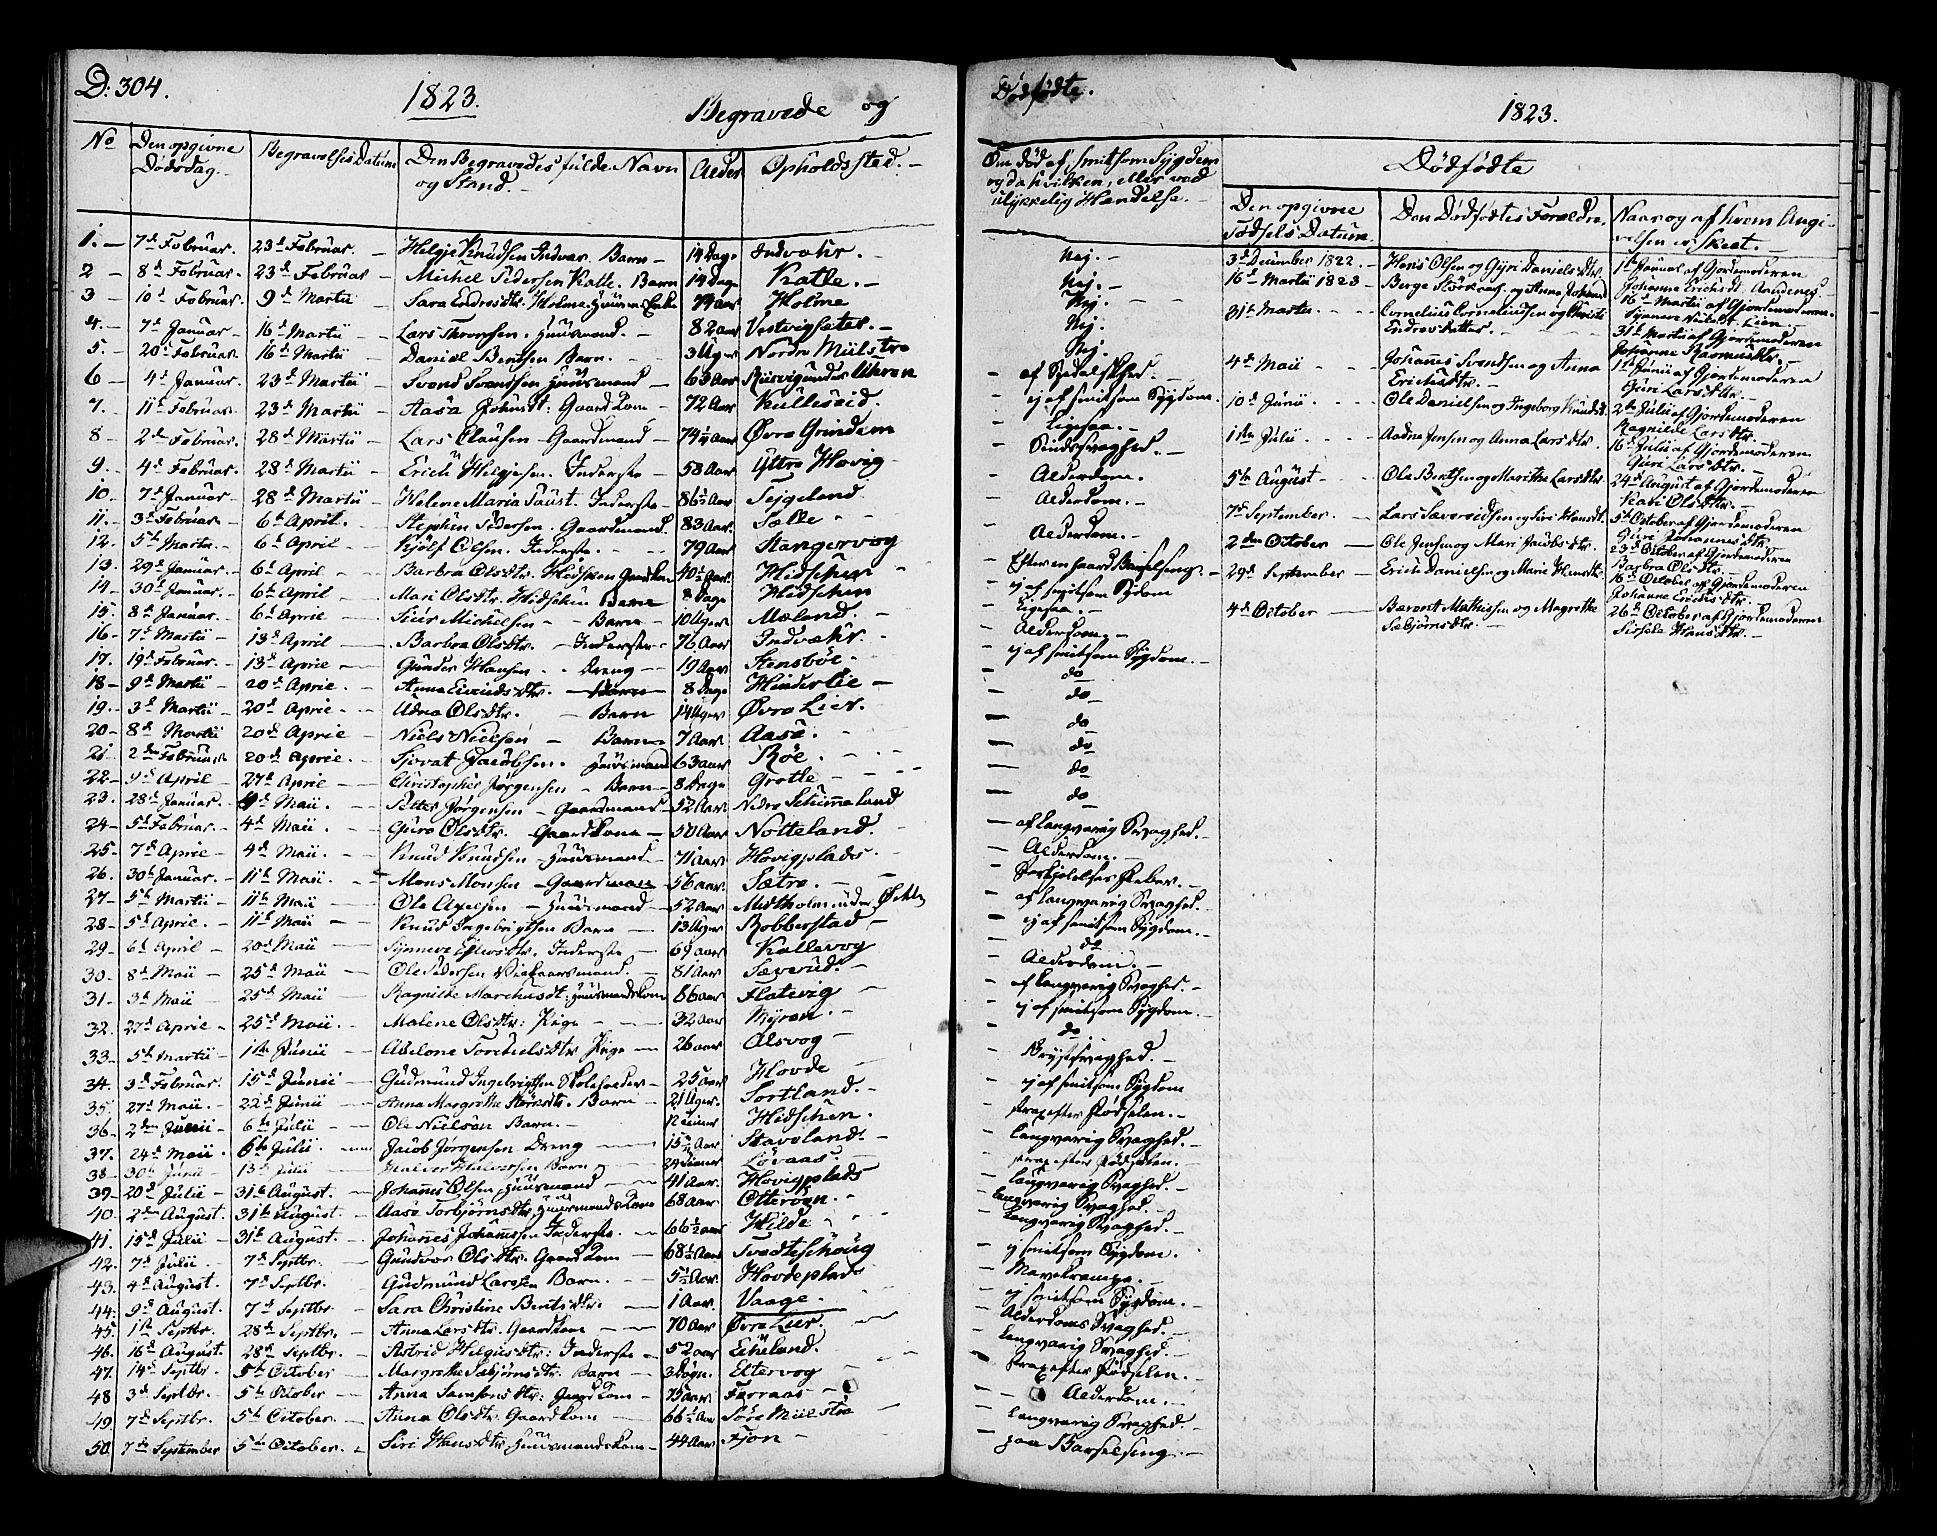 D: 304.
1823.
Begravede og
No
Den opgivne Dødsdag.
Begravelses Datum
Den Begravedes fulde Navn og Stand.
Alder
Opholdssted.
1. 7d Februar. 23d Februar. Helgje Knudsen Indvær Barn 14 Dage Indvæhr.
2 8d Februar. 23d Februar Michel Pedersen Katle. Barn 14 Dage Katle.
3 10d Februar. 9d Martii Sara Endresdtr. Holme Huusm: Enke 74 Aar Holme
4. 7d Januar 16d Martii Lars Thronsen. Huusmand. 82 aar
5. 20d Februar. 16d Martii Daniel Bentsen Barn. 3 Uger Nordre Mülstre
6 4d Januar. 23d Martii Svend Svendsen Huusmand 63 Aar
7. 11d Februar. 23d Martii Aasa Johnsdt: Gaard Kone 72 Aar Kulleseid.
8 2d Februar. 28d Martii Lars Clausen Gaardmand Øvre Grindem
9. 4d Februar. 28d Martii Erich Helgjesen. Inderste 58 Aar Yttre Høvig
10. 7d Januar 28d Martii Helene Maria Faust. Inderste 86½ Aar Tejgeland
11. 3d Februar. 6th April. Stephen Pedersen. Gaardmand. 83 Aar. Sælle
12. 5th Martii. 6th April Kjølf Olsen. Inderste. 79 Aar Stangervog
13. 29d Januar. 6th April Barbra Olsdtr. Hidschen Gaardkone 40½ Aar. Hidschen
14 30d Januar. 6th April Mari Olsdtr. Hidschen Barn 8 Dage Hidschen
15. 8d Januar. 6th April Siur Michelsen Barn 10 Uger Mæland.
16 7d Martii 13d April Barbra Olsdtr. Inderste 76 Aar Indvæhr.
17. 19d Februar. 13d April Gunder Hansen Dreng 19 Aar Stensbøe.
18 9d Martii 20d April. Anna Eivindsdtr. Barn 8 Dage Hinderlie
19. 3d Martii 20d April. Udna Olsdtr. Barn 14 Uger Øvre Lier.
20 8d Martii 20d April Niels Nielsen Barn 7 Aar Aase.
21. 2den Februar 20d April. Sjovat Jacobsen. Huusmand 63 aar Røe.
22 9d April 27d April Christopher Jørgensen Barn 8 Dage Grotle
23. 28d Januar. 4d Maii. Peter Jørgensen Gaardmand 52 Aar Nedre Stümmeland
24 5d Februar. 4d Maii Guro Olsdtr. Gaardkone 50 Aar Notteland.
25. 7d April 4d Maii. Knud Knudsen Huusmand 71 aar Hovigplads
26. 30d Januar. 11th Maii. Mons Monsen Gaardmand 56 aar. Sætre.
27. 5th Martii 11th Maii Ole Axelsen Huusmand 52 Aar
28. 5d April. 11th Maii Knud Ingebrigtsen Barn 13 Uger Robberstad
29. 6d April 20d Maii Synneve Ejlersdtr. Inderste 69 aar Kallevog
30. 8d Maii 25d Maii Ole Pedersen Vilkaarsmand. 81 Aar Sæverüd.
31. 3d Maii 25d Maii Ragnilde Marchusdt: Huusmandskone 86 aar Flatevig
32. 27d April 25d Maii. Malene Olsdtr: Pige 32 aar Myren.
33. 5th Martii 1ste Junii Abelone Torchielsdtr Pige 26 aar Alsvog
34. 3d Februar 15d Junii Gudmund Ingebrigtsen Skoleholder 25 aar Hovde
35. 27d Maii. 22d Junii Anna Margrethe Størksdtr. Barn 21 Uger Sortland.
36. 2den Junii 6th Julii Ole Nielsen Barn. Hidschen.
37. 24d Maii 6th Julii. Jacob Jørgensen Dreng 15½ Aar Stavoland.
38. 30d Junii 13d Julii Halvor Halvorsen Barn 24 Timer Løvaas
39. 20d Julii 31te August. Johannes Olsen Huusmand 41 Aar. Hovigplads
40. 2den August. 31te August. Aase Torbjørnsdtr, Huusmandskone 68 aar Ottervogn.
41. 15d Julii 31te August. Johannes Johannessen Inderste. 66½ aar Hilde
42. 7d Julii. 7d Septbr. Gundvor Olsdtr. Gaard Kone 68½ Aar Tvedteschoug
43. 4d August. 7d Septbr. Gudmund Larssen Barn. 5½ Aar. Hovdeplads
44. 9d August. 7d Septbr Sara Christine Bentsdtr. 1 Aar. Vaage.
45. 1ste Septbr. 28d Septbr. Anna Larsdtr. Gaardkone 70 Aar Øvre Lier.
46. 16d August. 28d Septbr. Astrid Helgesdtr: Inderste 52 aar Eikeland.
47. 14d Septbr 5th October Margrethe Sæbjørnsdtr. Barn 3 Døgn. Eltervog
48 3d Septbr. 5th October Anna Samsonsdtr: Gaard Kone 75 aar Førraas
49. 7d Septbr. 5th October. Anna Olsdtr. Gaardkone 66½ Aar Søre Mülstre
50. 7de September 5th October. Siri Hansdtr Huusmandskone 44 Aar Fjon
Dødfødte.
1823.
Om død af smitsom Sygdom
og da hvilken, eller ved
ulykkelig Hændelse.
Nej.
Nej.
Nej.
Nej.
Nej.
af Spedalskhed.
ej af smitsom Sygdom.
Ligesaa.
Alderdom.
Alderdom.
Alderdom.
Efter en haard Barselseng.
ej af smitsom Sygdom
Ligesaa.
Alderdom.
ej af smitsom Sygdom.
do
do
do
do
do
do
af langvarig Svaghed.
Alderdom.
Forkjølelses Feber.
af langvarig Svaghed.
ej af smitsom Sygdom.
do
Alderdom.
af langvarig Svaghed.
ej af smitsom Sygdom.
do
Brystsvaghed.
ej af smitsom Sygdom
strax efter Fødselen.
langvarig Svaghed.
strax efter Fødselen.
langvarig Svaghed.
langvarig Svaghed.
langvarig Svaghed.
ej smitsom Sygdom.
Mavekrampe.
ej smitsom Sygdom.
Alderdoms Svaghed.
langvarig Svaghed.
strax efter Fødselen.
Alderdom.
langvarig Svaghed.
paa Barselseng.
Dødfødte
Den opgivne Fødsels Datum.
Den Dødfødtes Forældre.
Naar og af hvem Angivelsen er Skeet.
3d December 1822. Hans Olsen og Gyri Danielsdtr. 1ste Januar af Gjordemoderen Johanne Erichsdt. Aadenes.
16d Martii 1823 Berge Størksen og Anna 16d Martii af Gjordemoderen Synneve Lien
31te Martii. Cornelius Corneliussen og Christi Endresdatter. 31te Martii af Gjordemoderen Johanne Rasmusdtr.
4d Maii Johannes Svendsen og Anna Erichsdtr. 1ste Junii af Gjordemoderen Guri Larsdtr.
10d Junii. Ole Danielsen og Ingeborg Knudsdt. 2den Julii af Gjordemoderen Ragnilde Larsdtr.
1ste Julii. Aadne Jensen og Anna Larsdtr. 16d Julii af Gjordemoderen Guri Larsdtr.
5th August Ole Benthsen og Marithe Larsdtr. 24d August af Gjordemoderen Kari Olsdtr.
7d September. Lars Sævereidsen og Siri Hansdt. 5th October af Gjordemoderen Guri Johannesdtr.
2den October Ole Jensen og Mari Jacobsdtr. 23d October af Gjordemoderen Barbra Olsdtr.
29d September Erich Danielsen og Marie Hansdt. 16d October af Gjordemoderen Johanne Erichsdtr.
4d October Bærent Mathissen og Magrethe Sæbjørnsdtr. 26d October af Gjordemoderen Sissele Hansdtr.